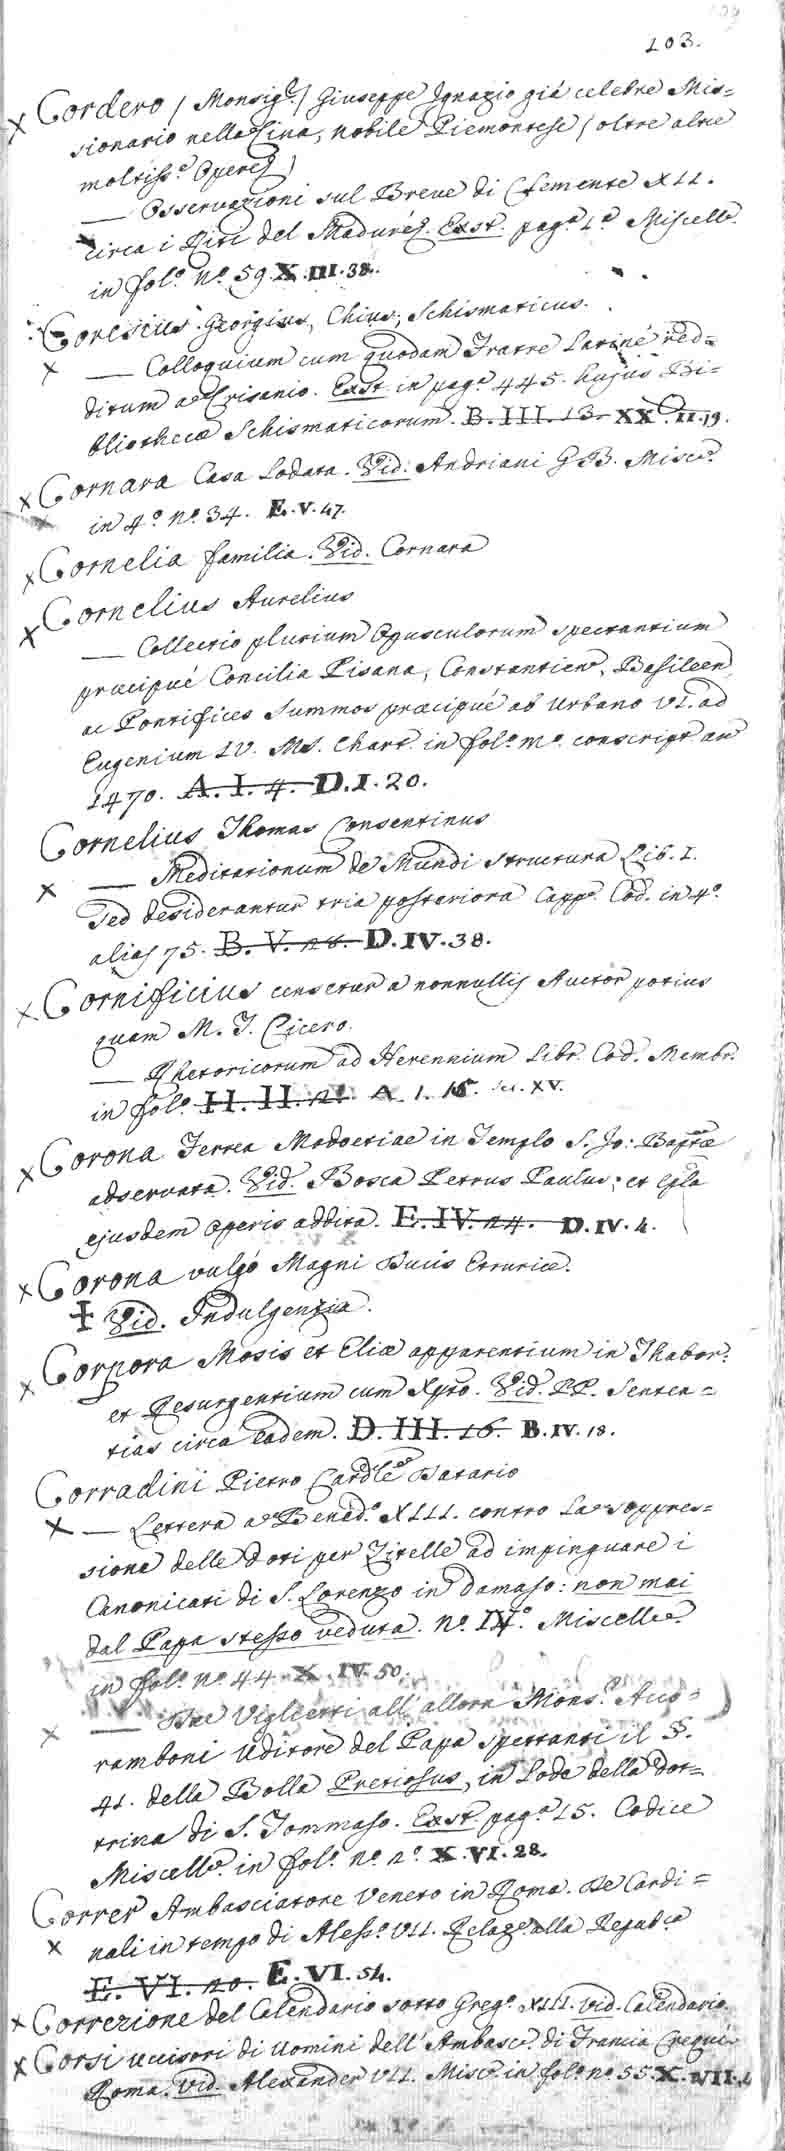 103.
Cordero / Monsigr. / Giuseppe Ignazio già celebre Mis=
sionario nella Cina, nobile Piemontese / oltre altre
moltiss.e Opere /
— Osservazioni sul Breve di Clemente XII.
circa i Riti del Madurè. Exst. pag.a 1.a Miscell.
in fol.o n.o 59. X.III.38.
Coressius Georgius, Chius, Schismaticus.
— Colloquium cum quodam Fratre Latinè red=
ditum a Crisanio. Exst. in pag.a 445. hujus Bi=
bliothecæ Schismaticorum. B.III.13. XX.II.19.
Cornara Casa Lodata. Vid. Andriani G.B. Misc.
in 4.o n.o 34. E.V.47.
Cornelia familia. Vid. Cornara
Cornelius Aurelius
— Collectio plurium Opusculorum spectantium
præcipuè Concilia Pisana, Constantien, Basileen,
ac Pontifices Summos præcipuè ab Urbano VI. ad
Eugenium IV. Ms. Chart. in fol.o m.o conscript. an
1470. A.I.4. D.I.20.
Cornelius Thomas Consentinus
— Meditationum de Mundi structura Lib. I.
Sed desiderantur tria posteriora Capp. Cod. in 4.o
alias 75. B.V.28. D.IV.38.
Cornificius censetur a nonnullis Auctor potius
quam M. T. Cicero.
— Rhetoricorum ad Herennium Libr. Cod. Membr.
in fol.o H.II.21. A.I.16. sec. XV.
Corona Ferrea Modoetiae in Templo S. Jo: Baptæ
adservata. Vid. Bosca Petrus Paulus; et Epla
ejusdem operis addita. E.IV.24. D.IV.4.
Corona vulgò Magni Ducis Etruriæ.
+ Vid. Indulgenzia.
Corpora Mosis et Eliæ apparentium in Thabor:
et Resurgentium cum Xpto. Vid. PP. Senten=
tias circa eadem. D.III.16. B.IV.18.
Corradini Pietro Cardle Datario
— Lettera a Bened.o XIII. contro la soppres=
sione delle doti per Zitelle ad impinguare i
Canonicati di S. Lorenzo in damaso: non mai
dal Papa stesso veduta. n.o IV.o Miscell.
in fol.o n.o 44. X.IV.50.
— Due Viglietti all'allora Mons.r Acco=
ramboni Uditore del Papa spettanti il §.
41. della Bolla Pretiosus, in Lode della Dot=
trina di S. Tommaso. Exst. pag.a 15. Codice
Miscell. in fol.o n.o 2.o X.VI.28.
Correr Ambasciatore Veneto in Roma. De Cardi=
nali in tempo di Aless.o VII. Relaz.e alla Repub.ca
E.VI.20. E.VI.54.
Correzione del Calendario sotto Greg.o XIII. vid. Calendario.
Corsi uccisori di uomini dell'Ambasc.e di Francia Crequì
Roma. Vid. Alexander VII. Misc. in fol.o n.o 55. X.VII.